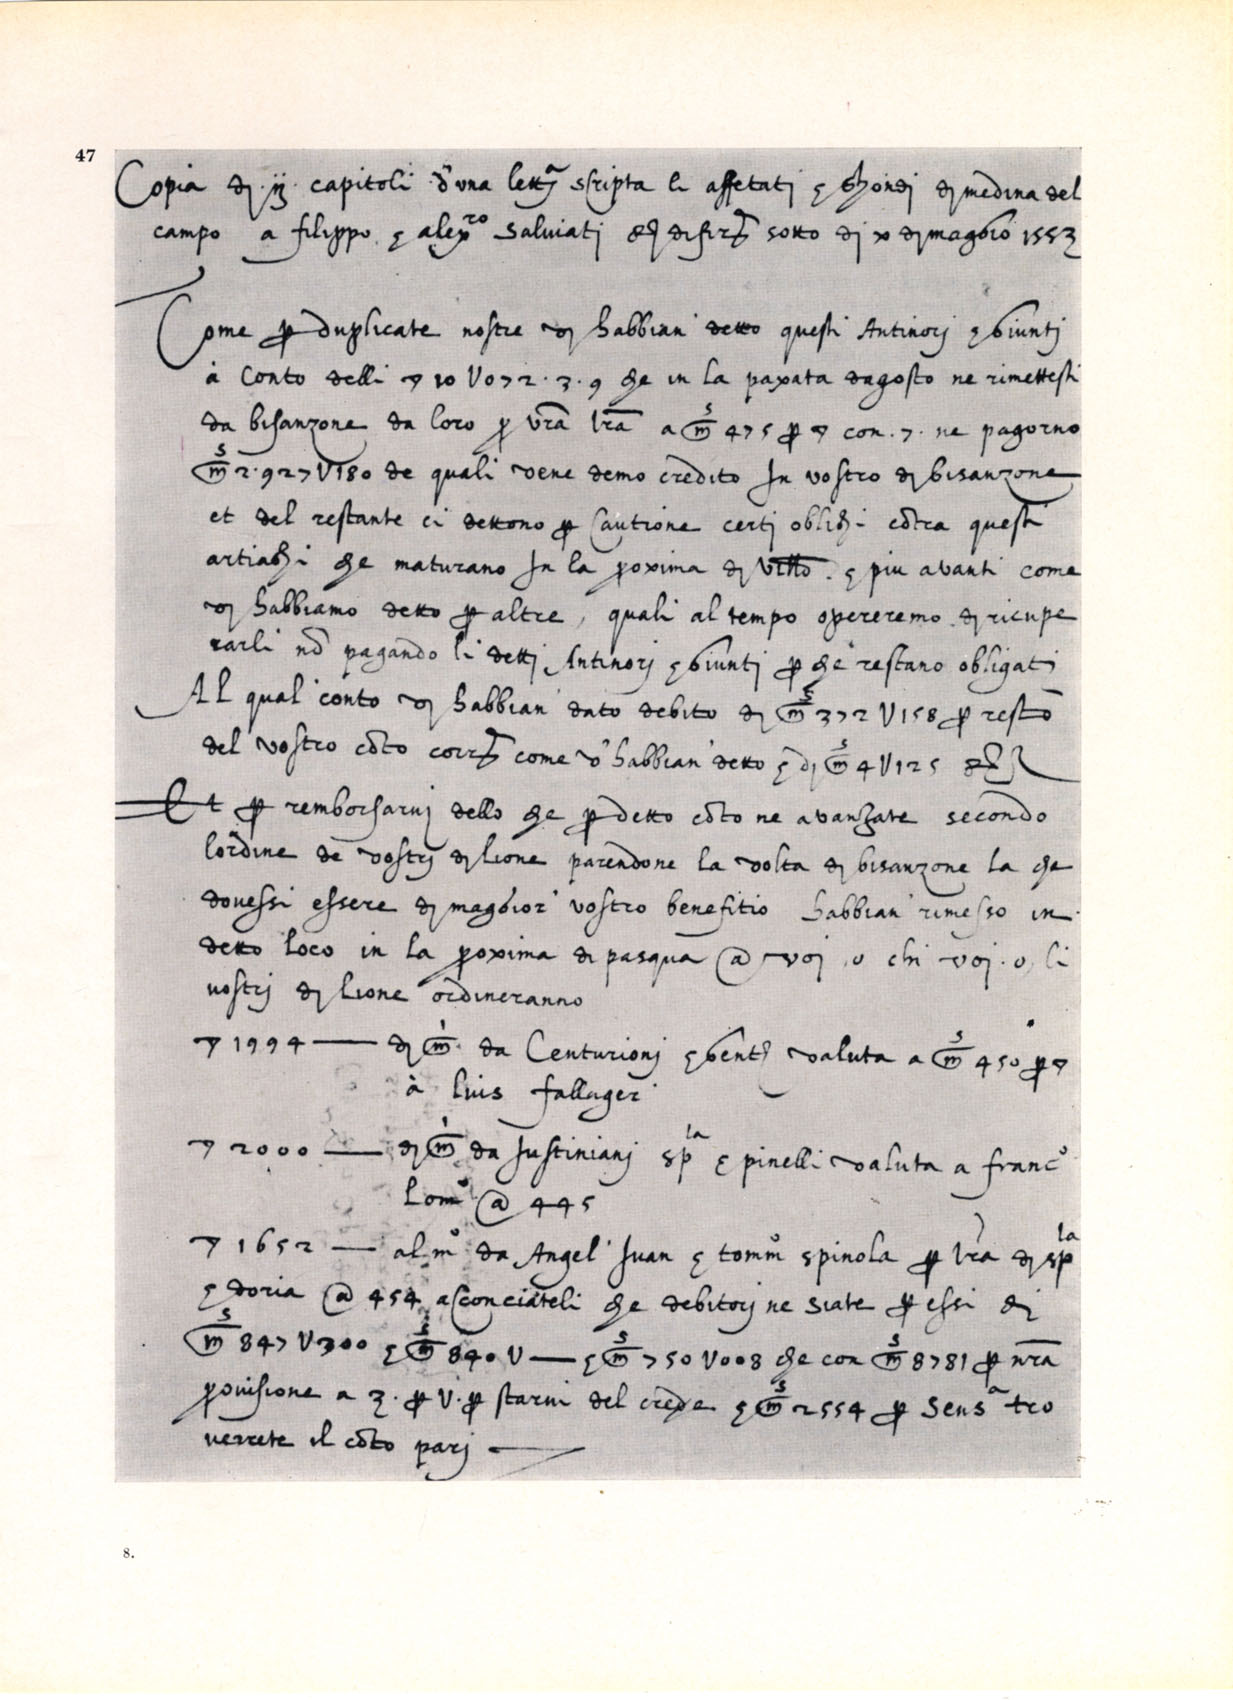 47
Copia di ij capitoli d'una lettra scripta li affetati e ghondi di medina del
campo a filippo e alexro salviati di firze sotto di x di maggio 1553
Come p duplicate nostre vi habbian detto questi Antinorj e giunti
à Conto delli 10 V 072.3.9 che in la paxata dagosto ne rimettesti
da bisanzone da loro p vra lra a 475 p con .7. ne pagorno
2.927 V 180 de quali vene demo credito In vostro di bisanzone
et del restante ci dettono p Cautione certi oblighi cōtra questi
che maturano In la proxima di e piu avanti come
vi habbiamo detto p altre, quali al tempo opereremo di ricupe
rarli nō pagando li detti Antinorj e giunti p che restano obligati
Al qual conto vi habbian dato debito di 372 V 158 p resto
del vostro cōto corrte come v' habbian detto e di 4 V 125
Et p remborsarvj dello che p detto cōto ne avanzate secondo
lordine de vostrj di lione parendone la volta di bisanzone la che
dovessi essere di maggior vostro benefitio habbian rimesso in
detto loco in la proxima di pasqua @ voj o chi voj o li
vostrj di lione ordineranno
1994 — di m da Centurionj e valuta a 450 p
à luis fallager
2000 — di m da Justinianj spla e pinelli valuta a franco
lomo @ 445
1652 — al mo da Angel Juan e tommo spinola p lra di spla
e doria @ 454 asconciateli che debitorj ne siate p essi di
847 V 300 e 840 V — e 750 V 008 che con 8781 p nra
provisione a 3. p V. p starvi del crede e 2554 p Sensa tro
verrete il cōto parj
8.